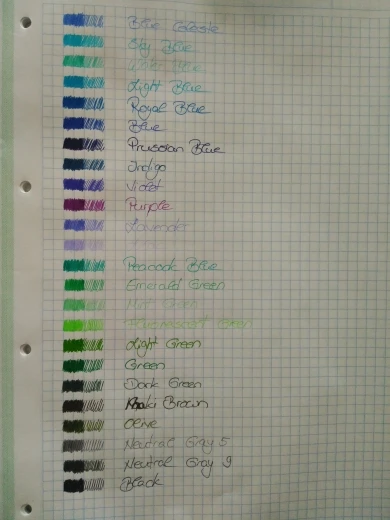 Blue
Sky Blue
Blue
Light Blue
Royal Blue
Blue
Prussian Blue
Indigo
Violet
Purple
Lavender
Peacock Blue
Emerald Green
Green
Fluorescent Green
Light Green
Green
Dark Green
Khaki Brown
Olive
Neutral Gray 5
Neutral Gray 9
Black